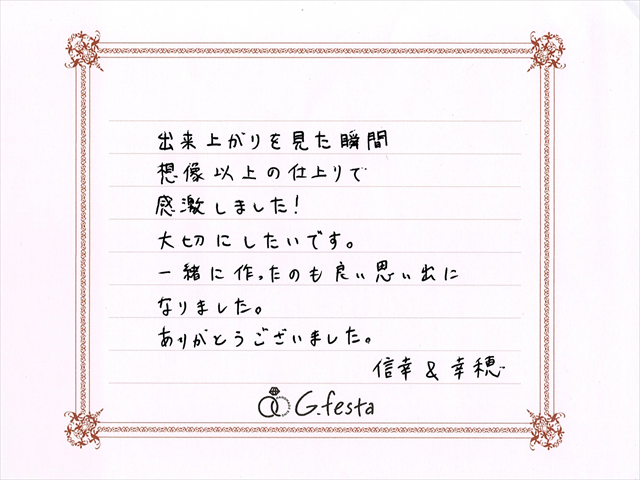 出来上がりを見た瞬間
想像以上の仕上りで
感激しました!
大切にしたいです。
一緒に作ったのも良い思い出に
なりました。
ありがとうございました。
信幸 & 幸穂
G.festa